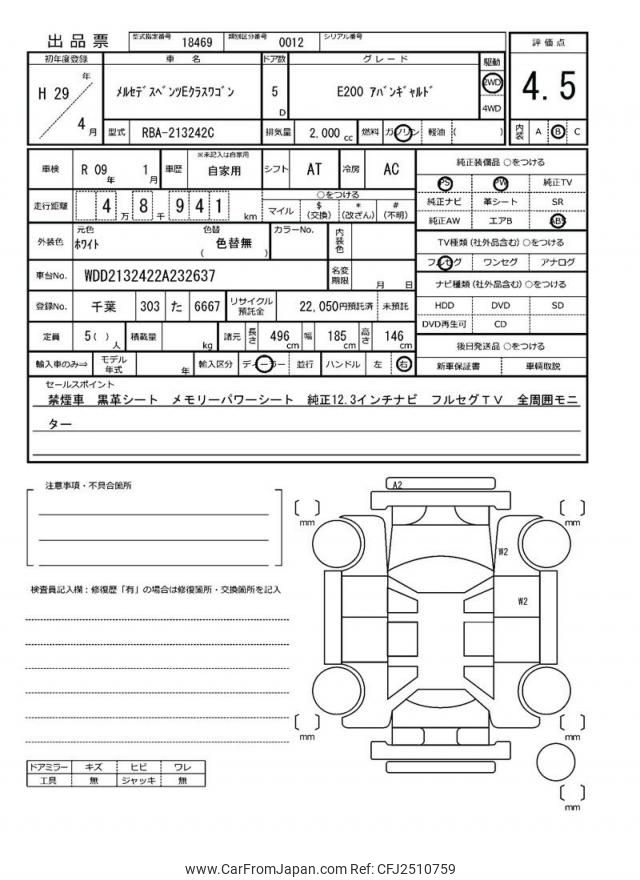 出品票 型式指定番号 18469 類別区分番号 0012 シリアル番号
初年度登録 車名 ドア数 グレード 駆動 評価点
H 29 年 4 月 メルセデスベンツEクラスワゴン 5 D E200 アバンギャルド 2WD 4WD 4.5
型式 RBA-213242C 排気量 2,000 cc 燃料 ガソリン 軽油 ( ) 内装 A B C
車検 R 09 年 1 月 車歴 ※未記入は自家用 自家用 シフト AT 冷房 AC 純正装備品 ○をつける
PS PW 純正TV
走行距離 4 万 8 千 9 4 1 km ○をつける マイル $ (交換) * (改ざん) # (不明) 純正ナビ 革シート SR
純正AW エアB ABS
外装色 元色 ホワイト 色替 色替無 ( ) カラーNo. 内装色 TV種類 (社外品含む) ○をつける
フルセグ ワンセグ アナログ
車台No. WDD2132422A232637 名変期限 月 日 ナビ種類 (社外品含む) ○をつける
登録No. 千葉 303 た 6667 リサイクル預託金 22,050円預託済 未預託 HDD DVD SD
DVD再生可 CD
定員 5 ( ) 人 積載量 kg 諸元 長さ 496 cm 幅 185 cm 高さ 146 cm 後日発送品 ○をつける
輸入車のみ⇒ モデル年式 年 輸入区分 ディーラー 並行 ハンドル 左 右 新車保証書 車輌取説
セールスポイント
禁煙車 黒革シート メモリーパワーシート 純正12.3インチナビ フルセグＴＶ 全周囲モニ
ター
注意事項・不具合箇所
A2
mm mm
W2
検査員記入欄：修復歴「有」の場合は修復箇所・交換箇所を記入
W2
mm mm
ドアミラー キズ ヒビ ワレ
工具 無 ジャッキ 無
mm
www.CarFromJapan.com Ref: CFJ2510759